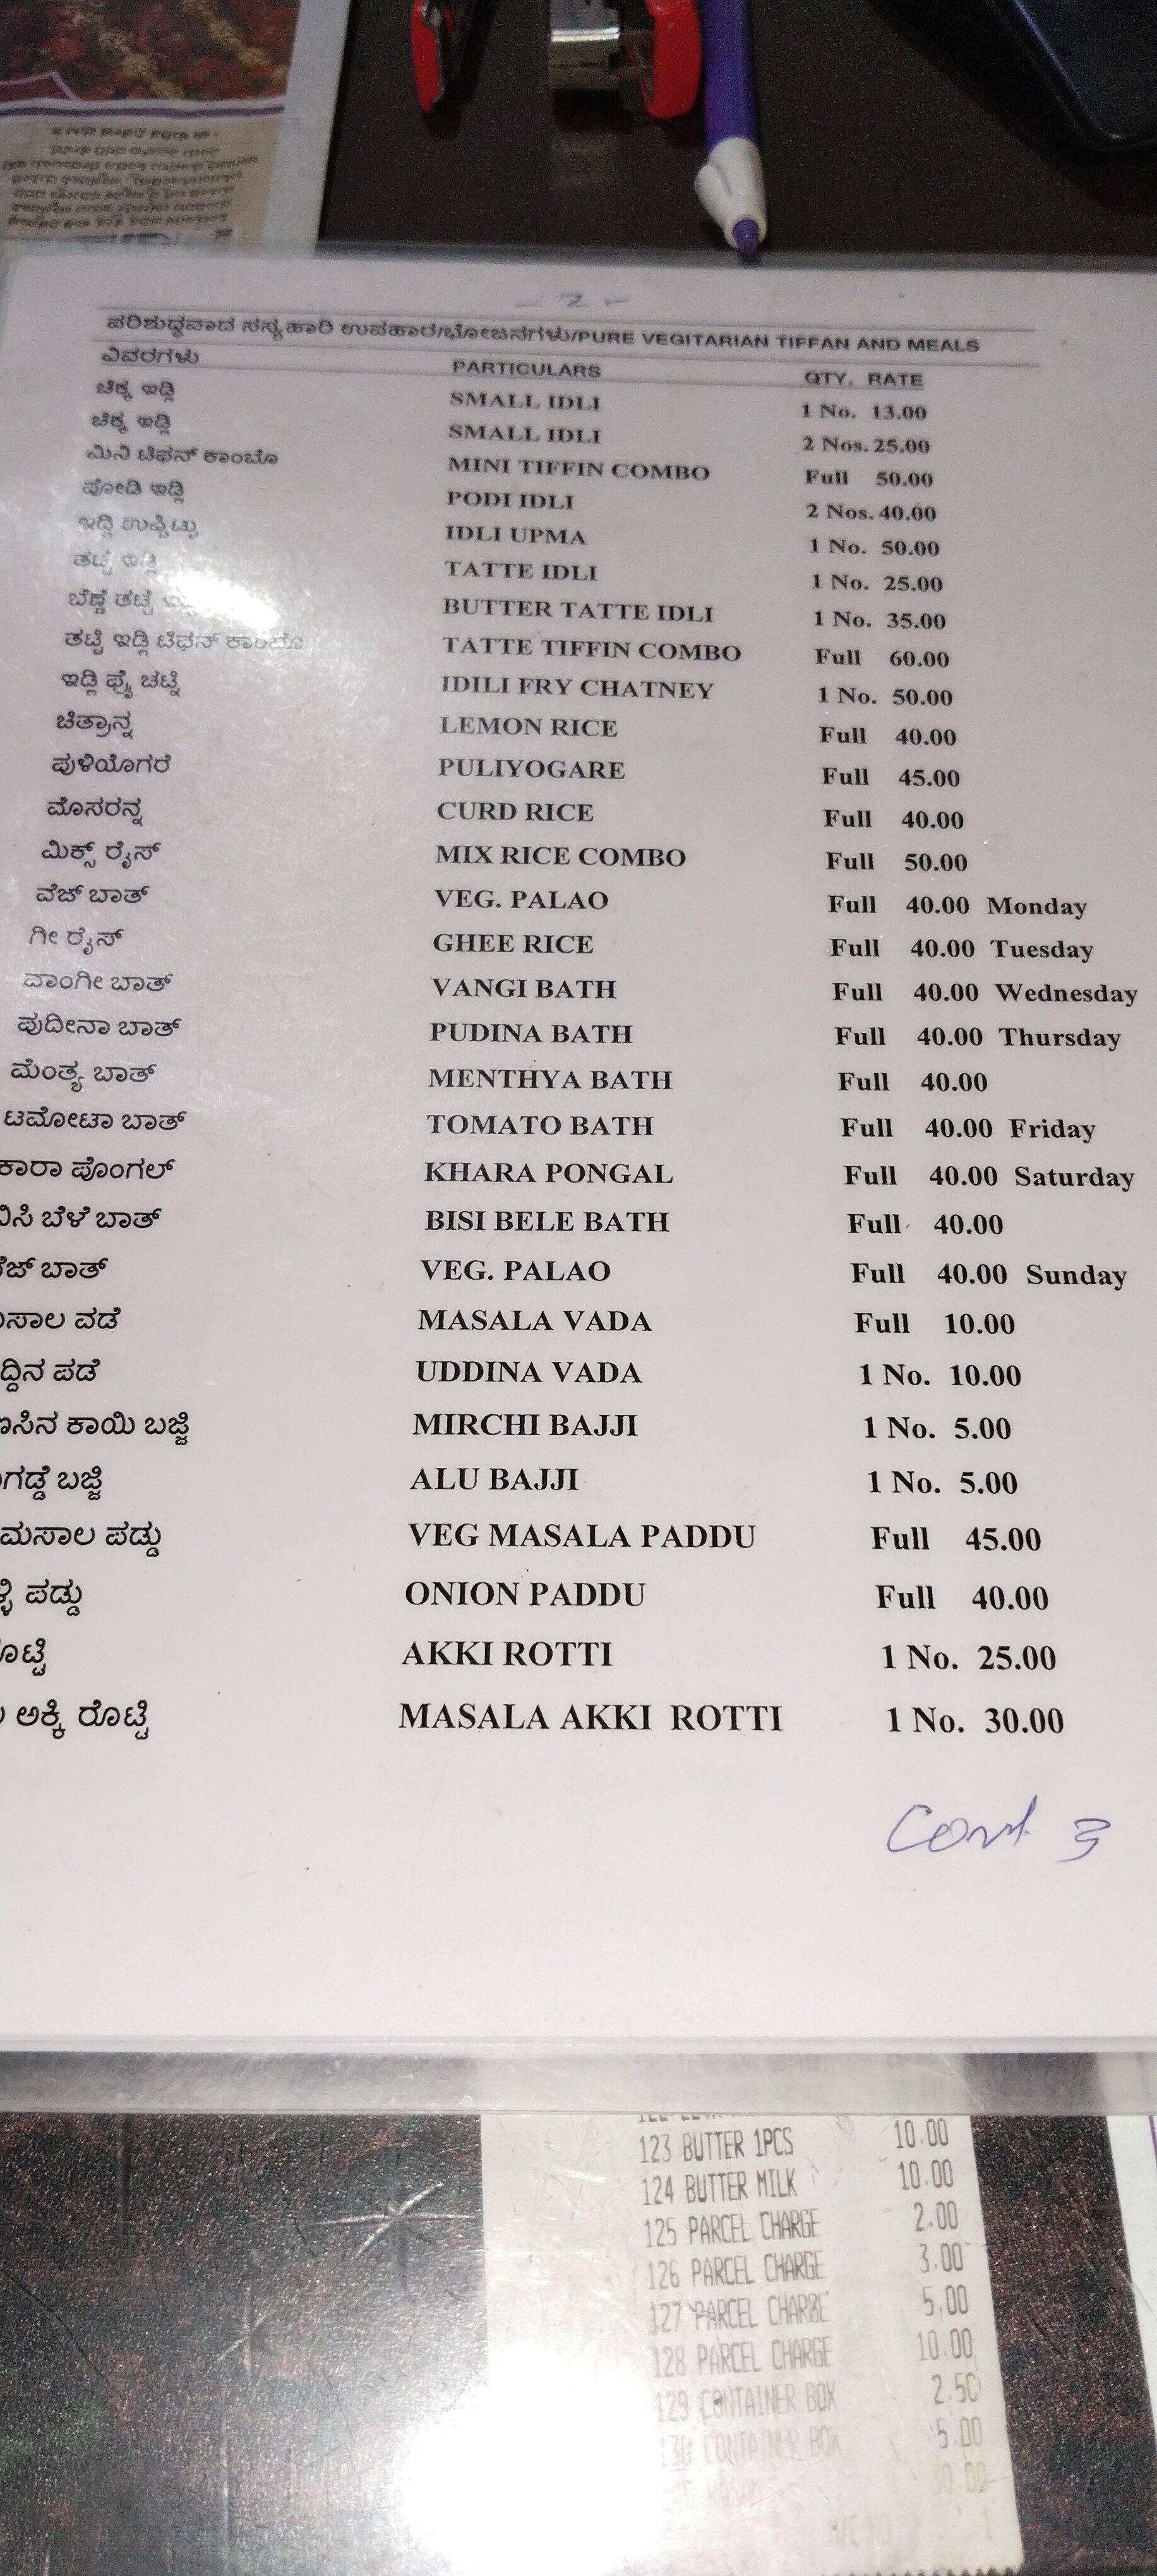 - 2 -
ಪರಿಶುದ್ಧವಾದ ಸಸ್ಯಹಾರಿ ಉಪಹಾರ/ಭೋಜನಗಳು/PURE VEGITARIAN TIFFAN AND MEALS
ವಿವರಗಳು PARTICULARS QTY. RATE
ಚಿಕ್ಕ ಇಡ್ಲಿ SMALL IDLI 1 No. 13.00
ಚಿಕ್ಕ ಇಡ್ಲಿ SMALL IDLI 2 Nos. 25.00
ಮಿನಿ ಟಿಫನ್ ಕಾಂಬೊ MINI TIFFIN COMBO Full 50.00
ಪೋಡಿ ಇಡ್ಲಿ PODI IDLI 2 Nos. 40.00
ಇಡ್ಲಿ ಉಪ್ಪಿಟ್ಟು IDLI UPMA 1 No. 50.00
ತಟ್ಟೆ ಇಡ್ಲಿ TATTE IDLI 1 No. 25.00
ಬೆಣ್ಣೆ ತಟ್ಟೆ BUTTER TATTE IDLI 1 No. 35.00
ತಟ್ಟೆ ಇಡ್ಲಿ ಟಿಫನ್ ಕಾಂಬೊ TATTE TIFFIN COMBO Full 60.00
ಇಡ್ಲಿ ಫ್ರೈ ಚಟ್ನಿ IDILI FRY CHATNEY 1 No. 50.00
ಚಿತ್ರಾನ್ನ LEMON RICE Full 40.00
ಪುಳಿಯೊಗರೆ PULIYOGARE Full 45.00
ಮೊಸರನ್ನ CURD RICE Full 40.00
ಮಿಕ್ಸ್ ರೈಸ್ MIX RICE COMBO Full 50.00
ವೆಜ್ ಬಾತ್ VEG. PALAO Full 40.00 Monday
ಗೀ ರೈಸ್ GHEE RICE Full 40.00 Tuesday
ವಾಂಗೀ ಬಾತ್ VANGI BATH Full 40.00 Wednesday
ಪುದೀನಾ ಬಾತ್ PUDINA BATH Full 40.00 Thursday
ಮೆಂತ್ಯ ಬಾತ್ MENTHYA BATH Full 40.00
ಟಮೋಟಾ ಬಾತ್ TOMATO BATH Full 40.00 Friday
ಕಾರಾ ಪೊಂಗಲ್ KHARA PONGAL Full 40.00 Saturday
ಬಿಸಿ ಬೆಳೆ ಬಾತ್ BISI BELE BATH Full 40.00
ವೆಜ್ ಬಾತ್ VEG. PALAO Full 40.00 Sunday
ಮಸಾಲ ವಡೆ MASALA VADA Full 10.00
ದ್ದಿನ ಪಡೆ UDDINA VADA 1 No. 10.00
ಣಸಿನ ಕಾಯಿ ಬಜ್ಜಿ MIRCHI BAJJI 1 No. 5.00
ಗಡ್ಡೆ ಬಜ್ಜಿ ALU BAJJI 1 No. 5.00
ಮಸಾಲ ಪಡ್ಡು VEG MASALA PADDU Full 45.00
ಳ್ಳಿ ಪಡ್ಡು ONION PADDU Full 40.00
ರೊಟ್ಟಿ AKKI ROTTI 1 No. 25.00
ಅಕ್ಕಿ ರೊಟ್ಟಿ MASALA AKKI ROTTI 1 No. 30.00
Cont 3
123 BUTTER 1PCS 10.00
124 BUTTER MILK 10.00
125 PARCEL CHARGE 2.00
126 PARCEL CHARGE 3.00
127 PARCEL CHARGE 5.00
128 PARCEL CHARGE 10.00
129 CONTAINER BOX 2.50
130 CONTAINER BOX 5.00